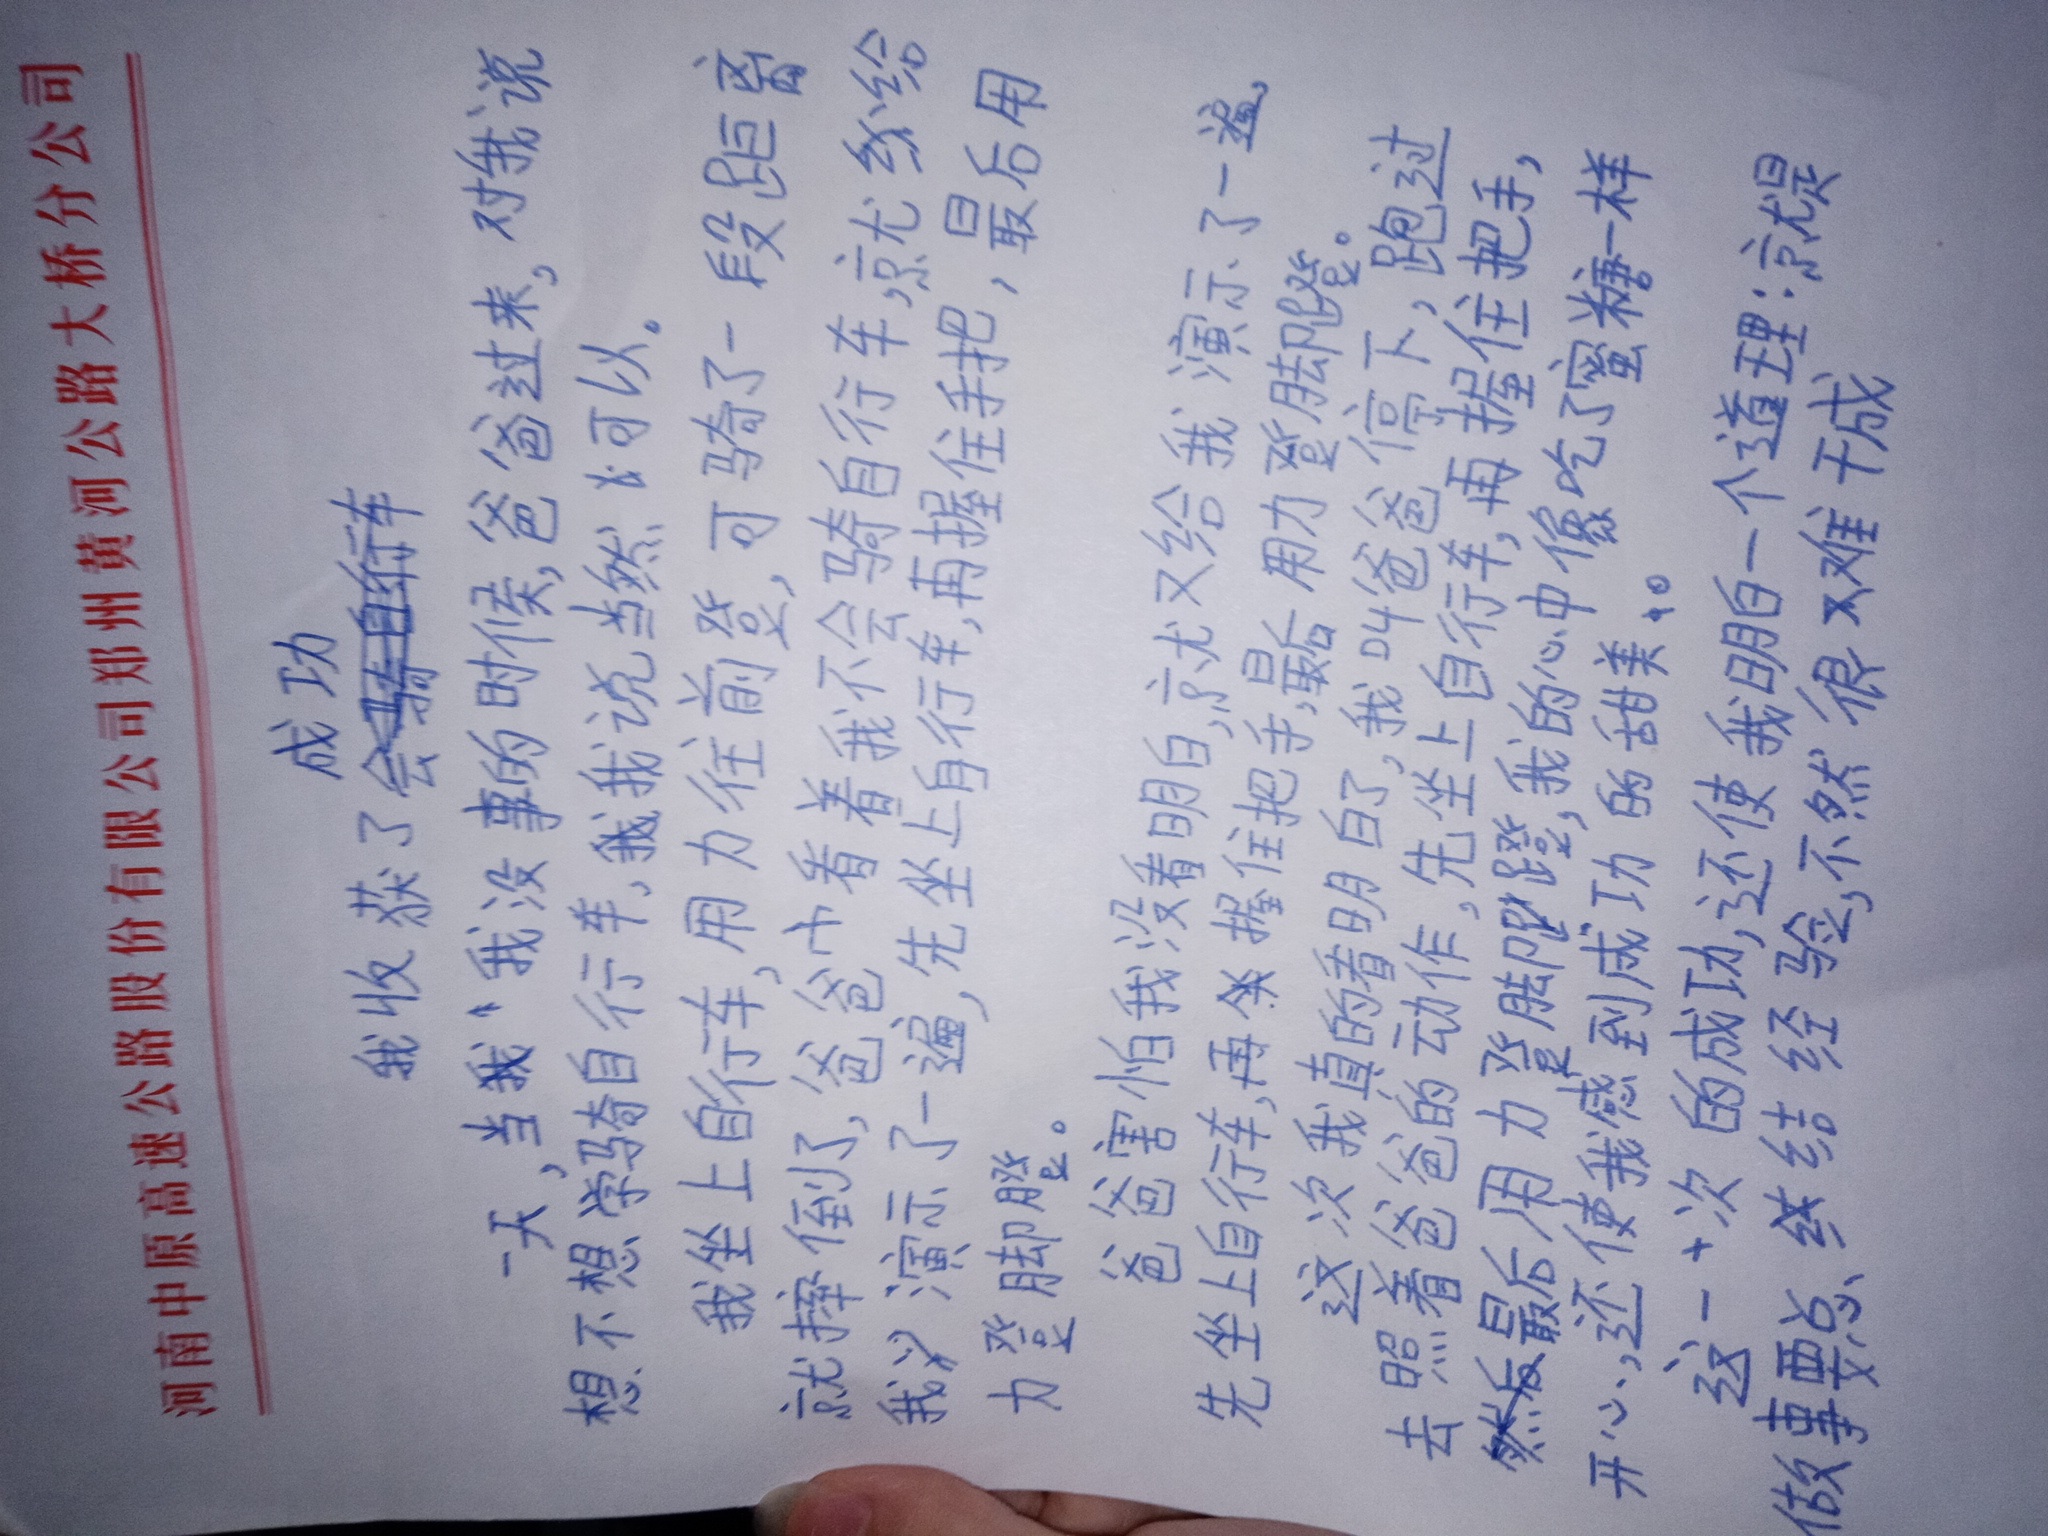 河南中原高速公路股份有限公司郑州黄河公路大桥分公司
成功
我收获了会骑自行车
一天,当我没事的时候,爸爸过来,对我说
想不想学骑自行车,我我说当然可以。
我坐上自行车,用力往前登,可骑了一段距离
就摔倒了,爸爸看着我不会骑自行车,就给
我演示了一遍,先坐上自行车,再握住手把,最后用
力登脚蹬。
爸爸害怕我没看明白,就又给我演示了一遍,
先坐上自行车,再握住把手,最后用力登脚蹬。
这次我真的看明白了,我叫爸爸停下,跑过
去照着爸爸的动作,先坐上自行车,再握住把手,
然后最后用力登脚蹬,我的心中像吃了蜜糖一样
开心,还使我感到成功的甜美。
这一次的成功,还使我明白一个道理:就是
做事要总结经验,不然很难干成